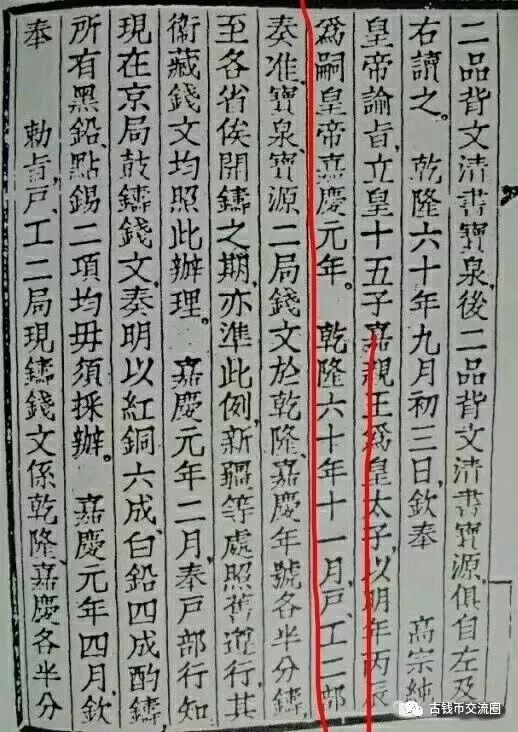 二品背文清書寶泉後二品背文清書寶源俱自左及
右讀之。 乾隆六十年九月初三日,欽奉 高宗純
皇帝諭旨,立皇十五子嘉親王爲皇太子,以明年丙辰
爲嗣皇帝嘉慶元年。 乾隆六十年十一月,戶、工二部
奏准寶泉、寶源二局錢文於乾隆、嘉慶年號各半分鑄,
至各省俟開鑄之期,亦準此例,新疆等處照舊遵行,其
衛藏錢文均照此辦理。 嘉慶元年二月,奉戶部行知
現在京局鼓鑄錢文,奏明以紅銅六成,白鉛四成酌鑄,
所有黑鉛、點錫二項均毋須採辦。 嘉慶元年四月,欽
奉 勅旨,戶、工二局現鑄錢文係乾隆、嘉慶各半分
古钱币交流圈